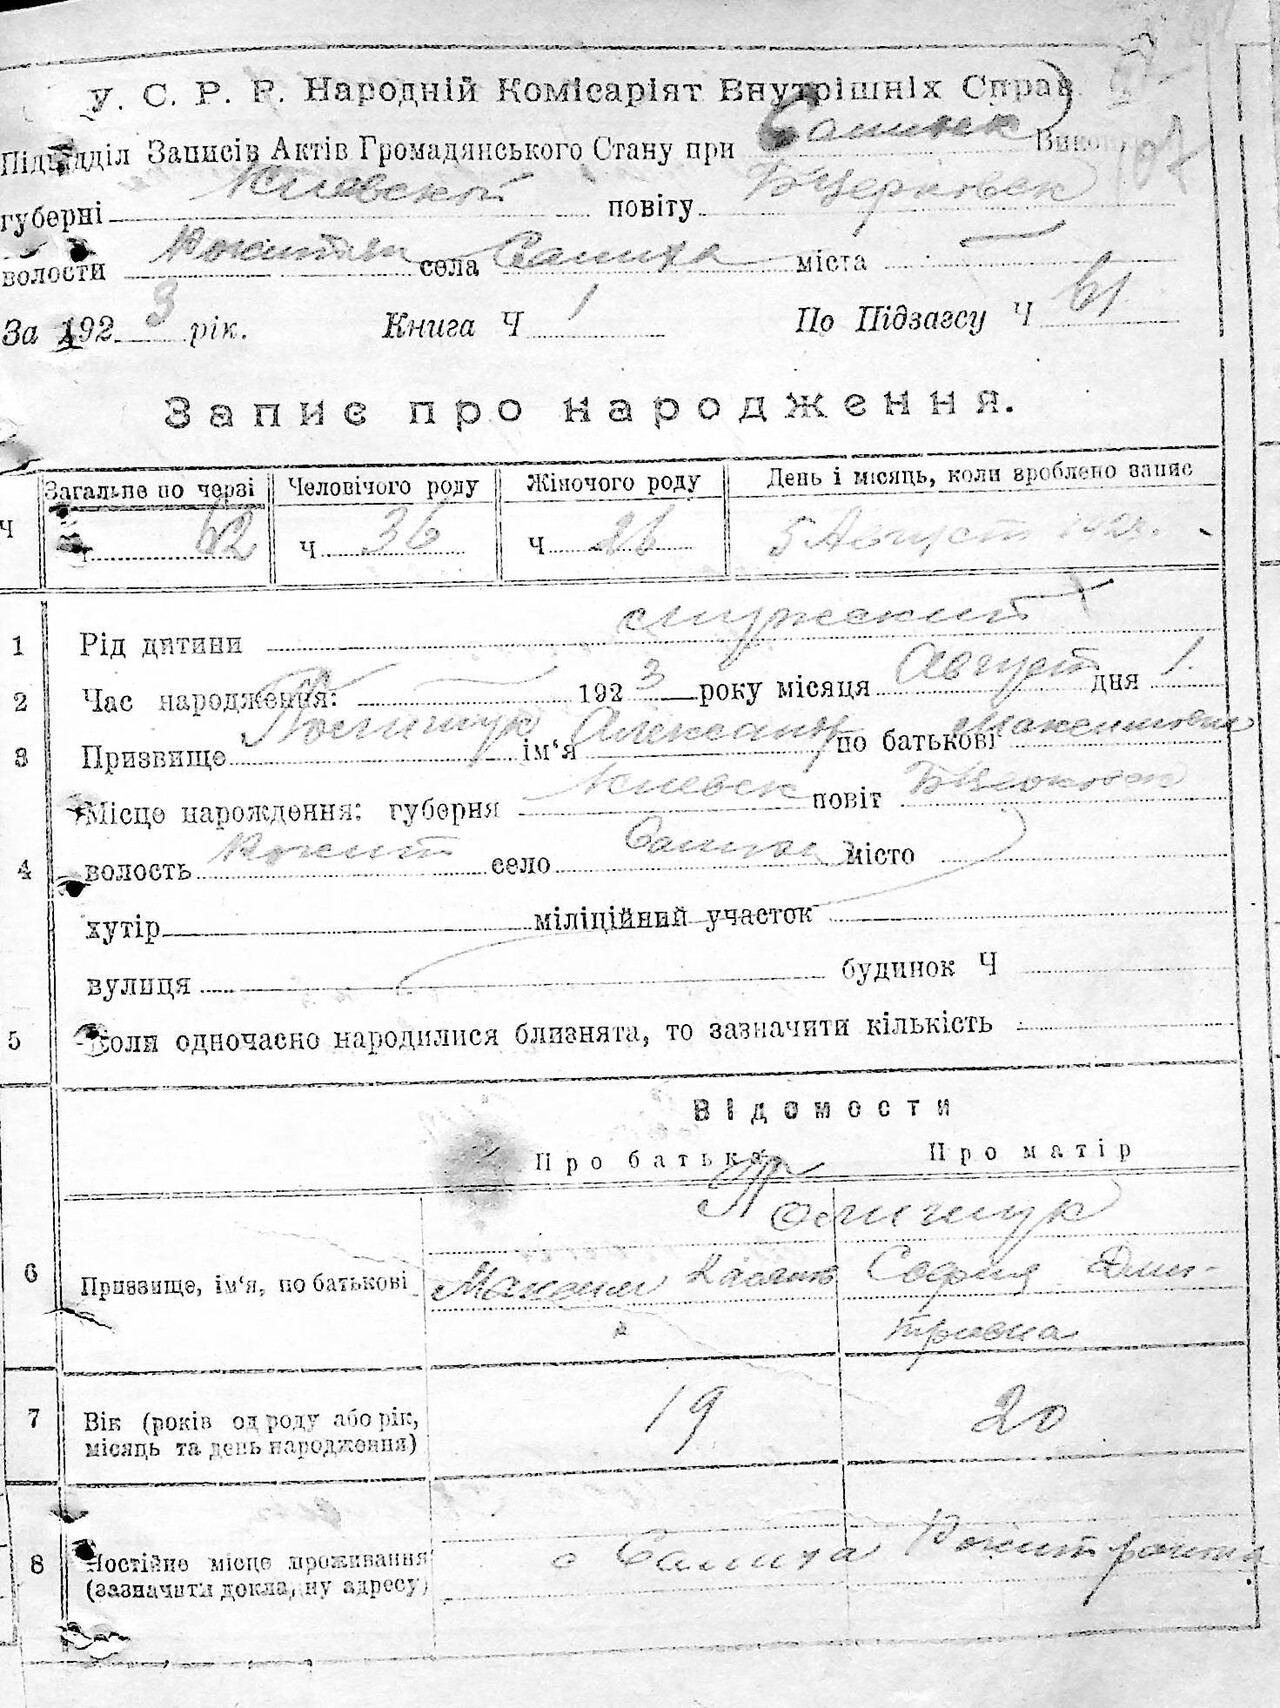 У. С. Р. Р. Народній Комісаріят Внутрішніх Справ
Підвідділ Записів Актів Громадянського Стану при Викон
губерні Киевской повіту БЦерковск
волости села Салиха міста —
За 1923 рік. Книга Ч 1 По Підзагсу Ч 61
Запис про народження.
Ч Загальне по черзі Человічого роду Жіночого роду День і місяць, коли зроблено запис
62 Ч 36 Ч 26 5 Август
1 Рід дитини мужский
2 Час народження: 1923 року місяця Август дня 1
3 Призвище Полищук ім‘я Александр по батькові
4 Місце народження: губерня Киевск повіт
волость Рокит село Салиха місто
хутір міліційний участок
вулиця будинок Ч
5 Коли одночасно народилися близнята, то зазначити кількість
Відомости
Про батька Про матір
Полищук
6 Призвище, ім‘я, по батькові Максим София Дми-
тривна
7 Вік (років од роду або рік, 19 20
місяць та день народження)
8 Постійне місце проживання с Салиха Рокит
(зазначити докладну адресу)